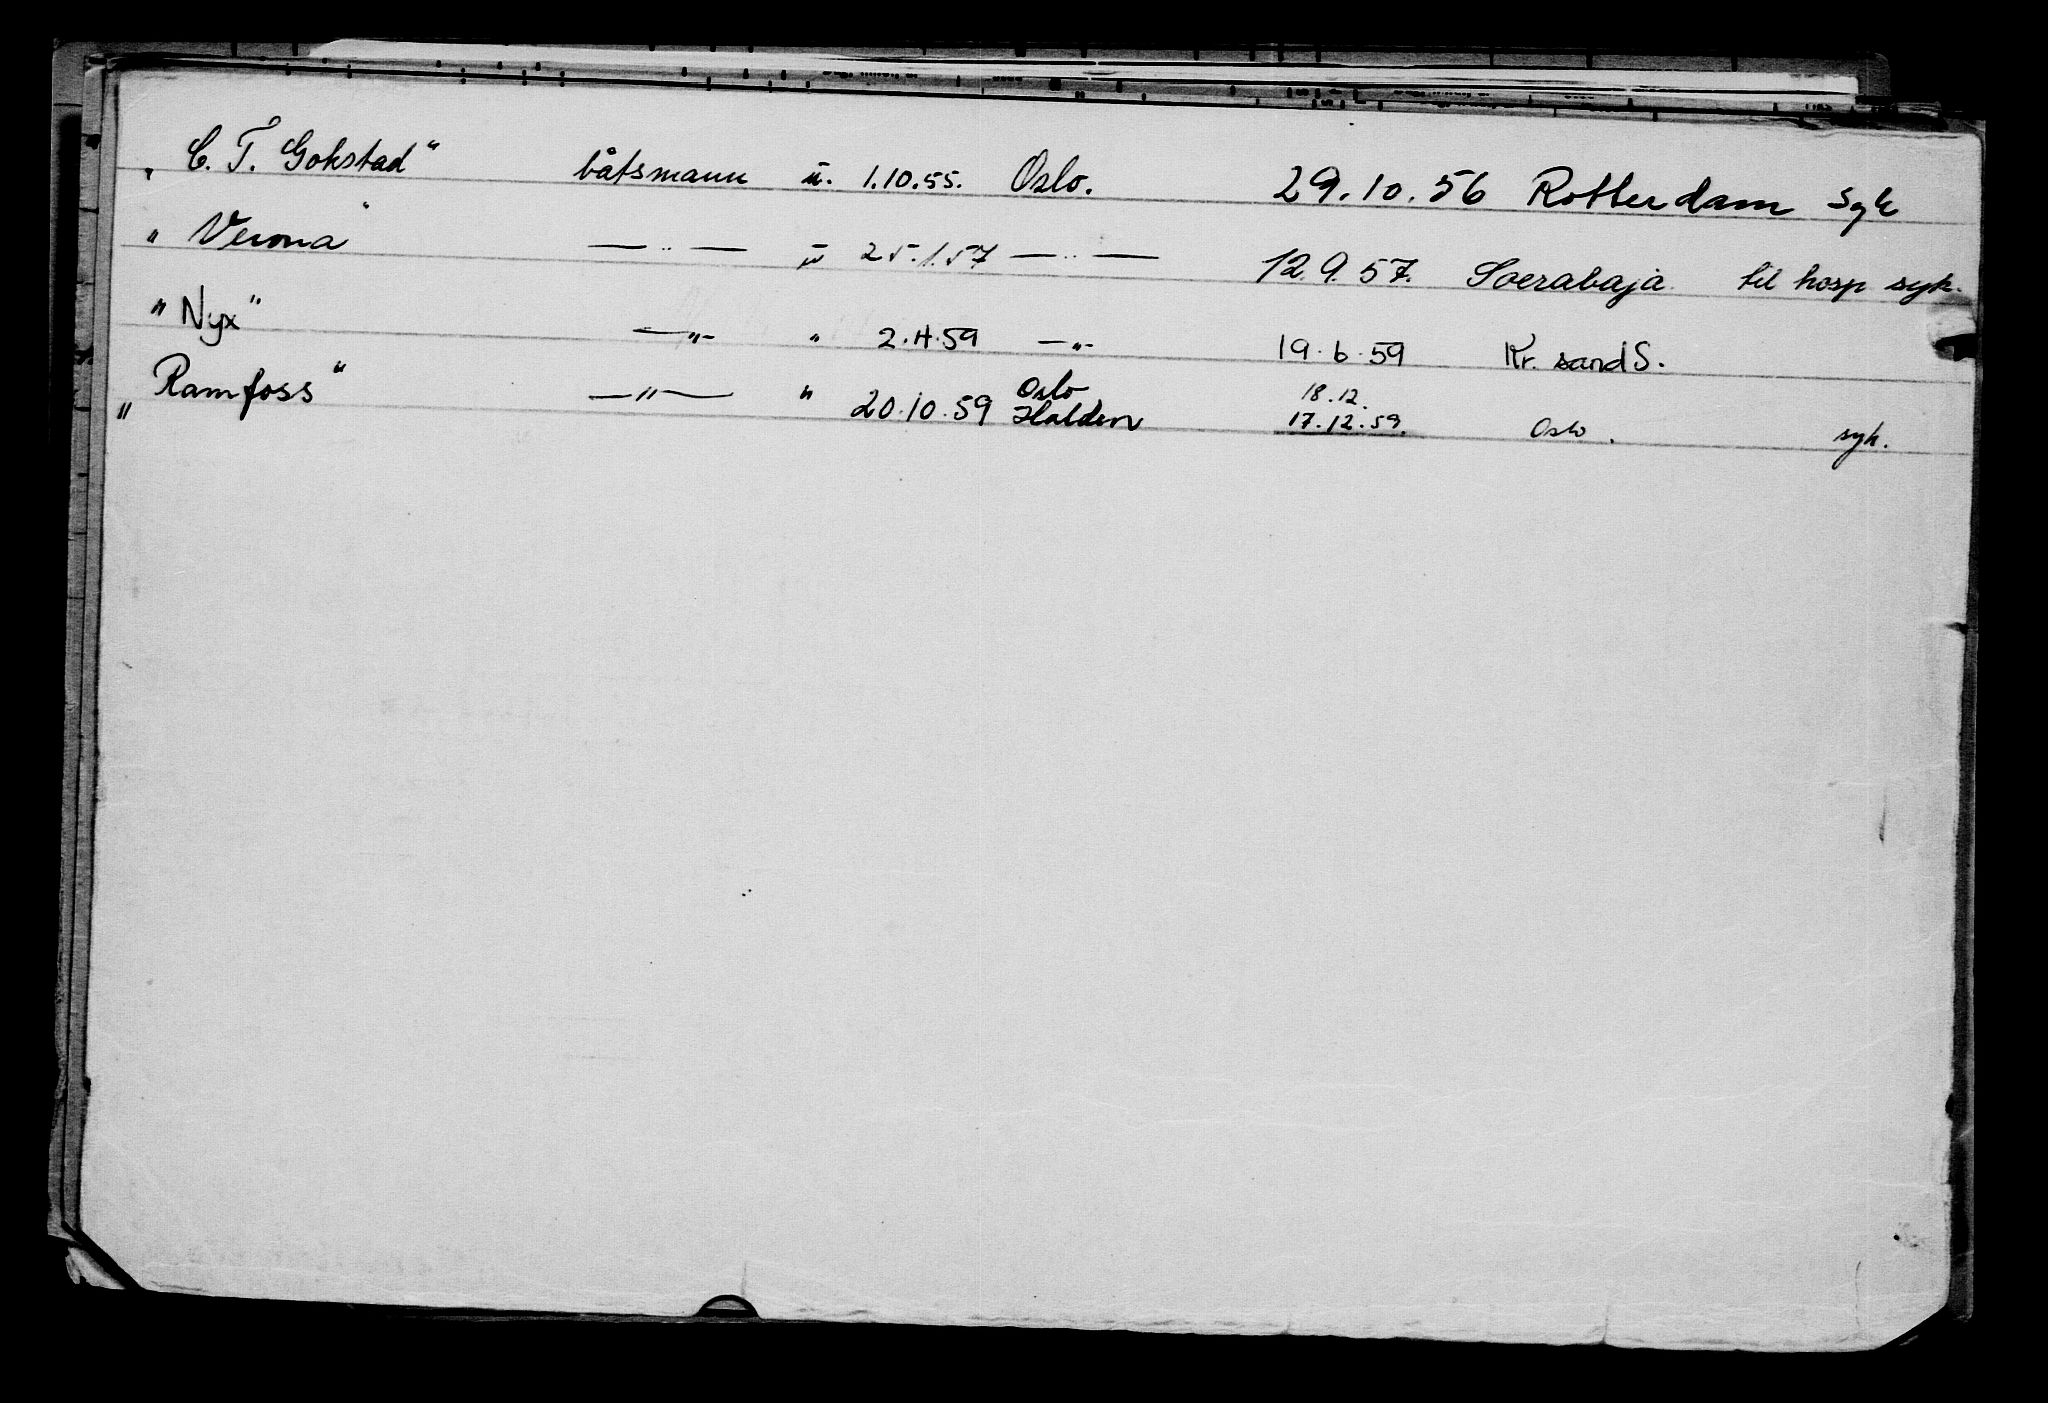 „ C. T. Gokstad" båtsmann u. 1.10.55. Oslo. 29.10.56 Rotterdam syk
" Verona" — " — u 25.1.57 — " — 12.9.57. Soerabaja til hosp syk.
" Nyx" — " — " 2.4.59 — " — 19.6.59 Kr. sand S.
" Ramfoss" — " — " 20.10.59 Oslo Halden 18.12. 17.12.59. Oslo. syk.